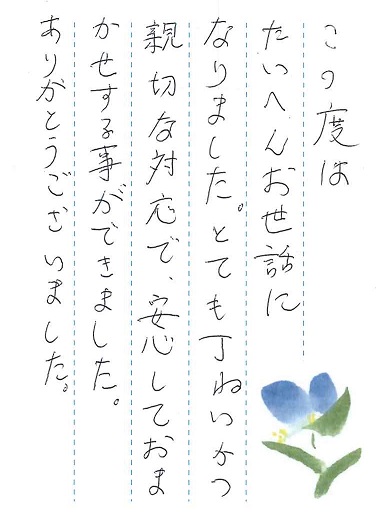 この度は
たいへんお世話に
なりました。とても丁ねいかつ
親切な対応で、安心しておま
かせする事ができました。
ありがとうございました。